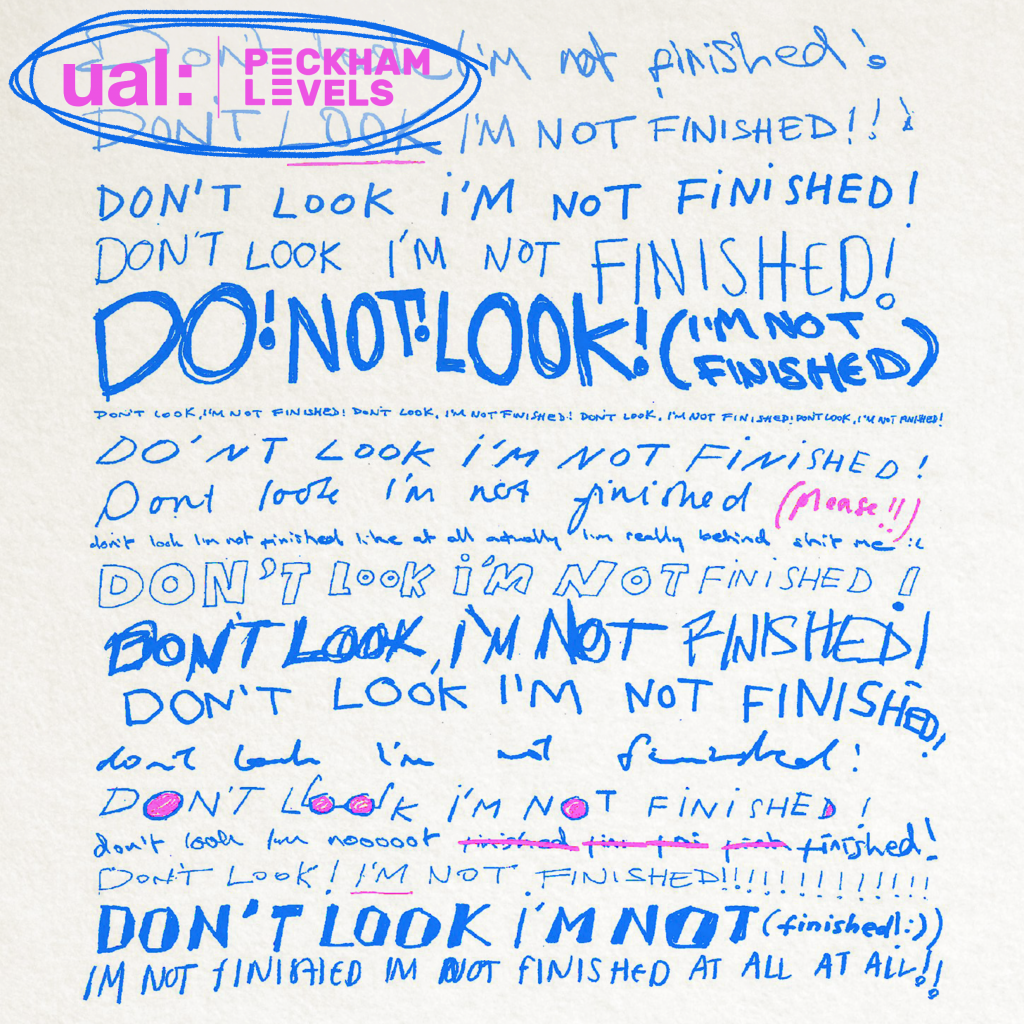 Don't look I'm not finished!
ual: PECKHAM LEVELS
DON'T LOOK I'M NOT FINISHED!!!
DON'T LOOK i'M NOT FiNiSHED!
DON'T LOOK I'M NOT FINISHED!
DO! NOT! LOOK! (I'M NOT FINISHED)
DON'T LOOK, I'M NOT FINISHED! DON'T LOOK, I'M NOT FINISHED! DON'T LOOK, I'M NOT FINISHED! DON'T LOOK, I'M NOT FINISHED!
DO'NT LOOK i'M NOT FiNiSHED!
Dont look I'm not finished (please!!)
don't look I'm not finished like at all actually I'm really behind shit me :(
DON'T LOOK i'M NOT FiNiSHED!
DON'T LOOK, I'M NOT FINISHED!
DON'T LOOK I'M NOT FINISHED!
don't look I'm not finished!
DON'T LOOK I'M NOT FiNiSHED!
don't look I'm nooooot finished fin fin finish finished!
DON'T LOOK! I'M NOT FINISHED!!!!!!!!!!!!!!
DON'T LOOK i'M NOT (finished!:))
IM NOT fINISHED IM NOT fINISHED AT ALL AT ALL!!